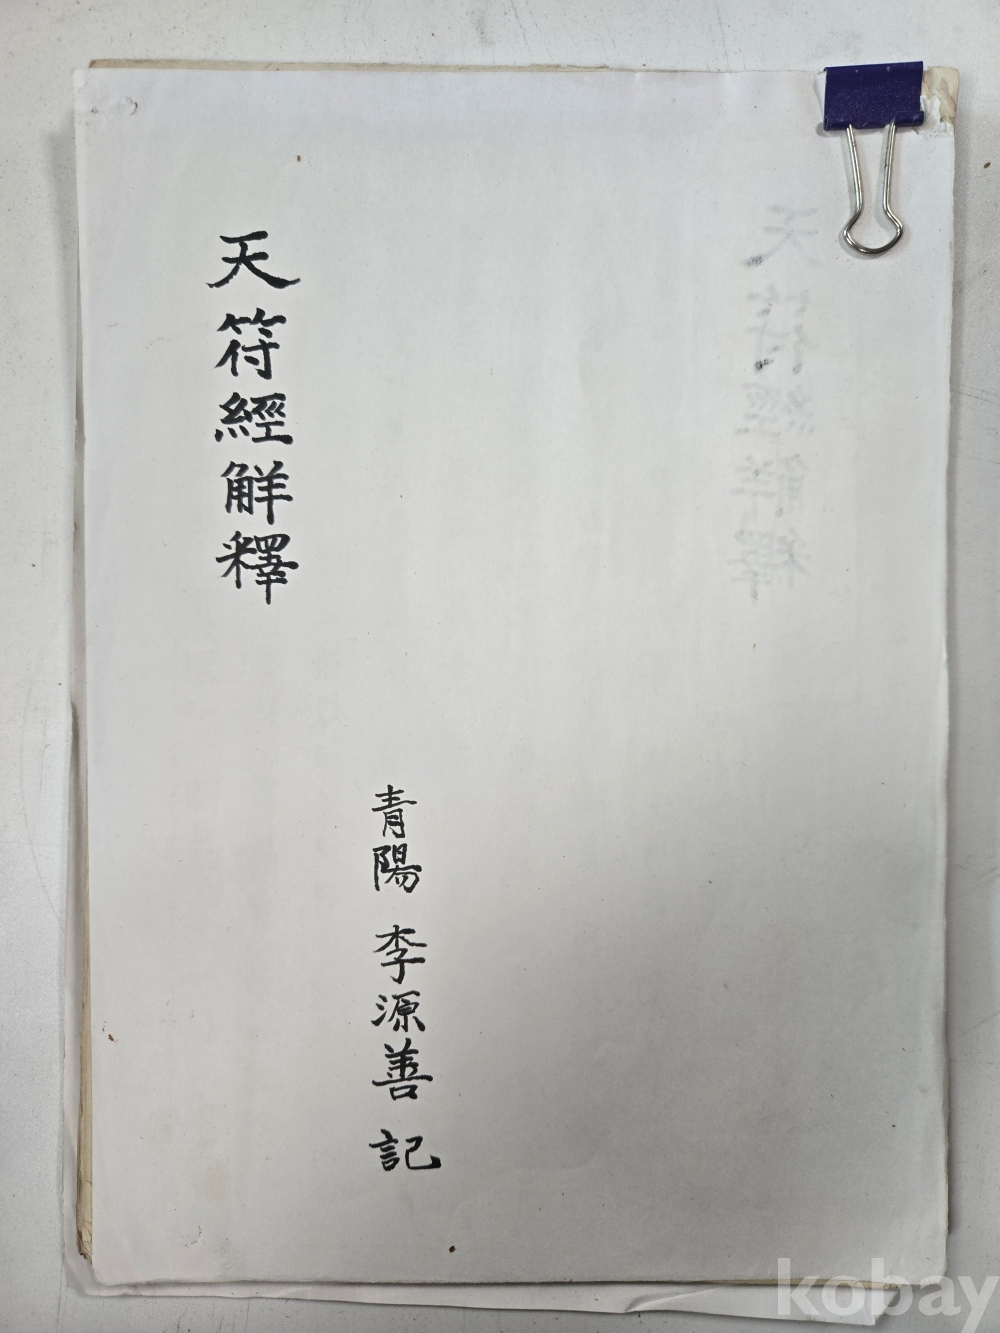 天符經觧釋
青陽 李源善 記
kobay